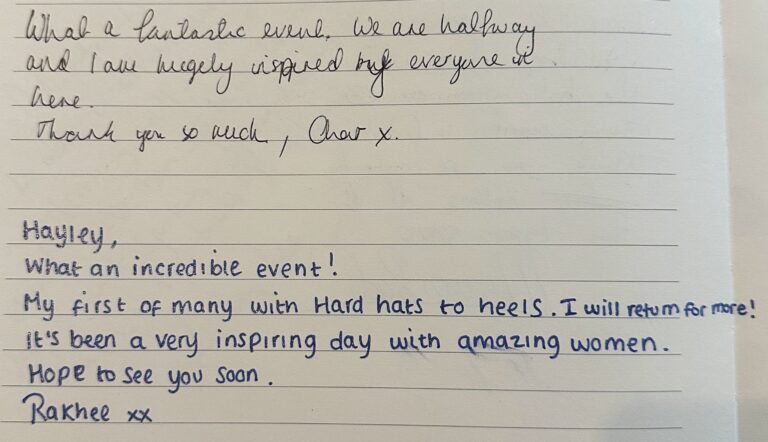 What a fantastic event. We are halfway
and I am hugely inspired by everyone
here.
Thank you so much, Char x.
Hayley,
What an incredible event!
My first of many with Hard hats to heels. I will return for more!
It's been a very inspiring day with amazing women.
Hope to see you soon.
Rakhee xx